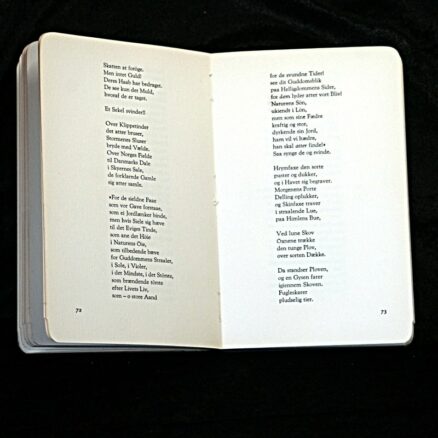 Skatten at forøge.
Men intet Guld!
Deres Haab har bedraget.
De see kun det Muld,
hvoraf de er taget.
Et Sekel svinder!
Over Klippetinder
det atter bruser,
Stormenes Sluser
bryde med Vælde.
Over Norges Fielde
til Danmarks Dale
i Skyernes Sale,
de forklarede Gamle
sig atter samle.
»For de sieldne Faae
som vor Gave forstaae,
som ei Jordlænker binde,
men hvis Siele sig hæve
til det Eviges Tinde,
som ane det Høie
i Naturens Øie,
som tilbedende bæve
for Guddommens Straaler,
i Sole, i Violer,
i det Mindste, i det Største,
som brændende tørste
efter Livets Liv,
som – o store Aand
72
for de svundne Tider!
see dit Guddomsblik
paa Helligdommens Sider,
for dem lyder atter vort Bliv!
Naturens Søn,
ukiendt i Løn,
men som sine Fædre
kraftig og stor,
dyrkende sin Jord,
ham vil vi hædre,
han skal atter finde!«
Saa synge de og svinde.
Hrymfaxe den sorte
puster og dukker,
og i Havet sig begraver.
Morgenens Porte
Delling oplukker,
og Skinfaxe traver
i straalende Lue,
paa Himlens Bue.
Ved lune Skov
Øxnene trække
den tunge Plov,
over sorten Dække.
Da standser Ploven,
og en Gysen farer
igiennem Skoven.
Fugleskarer
pludselig tier.
73